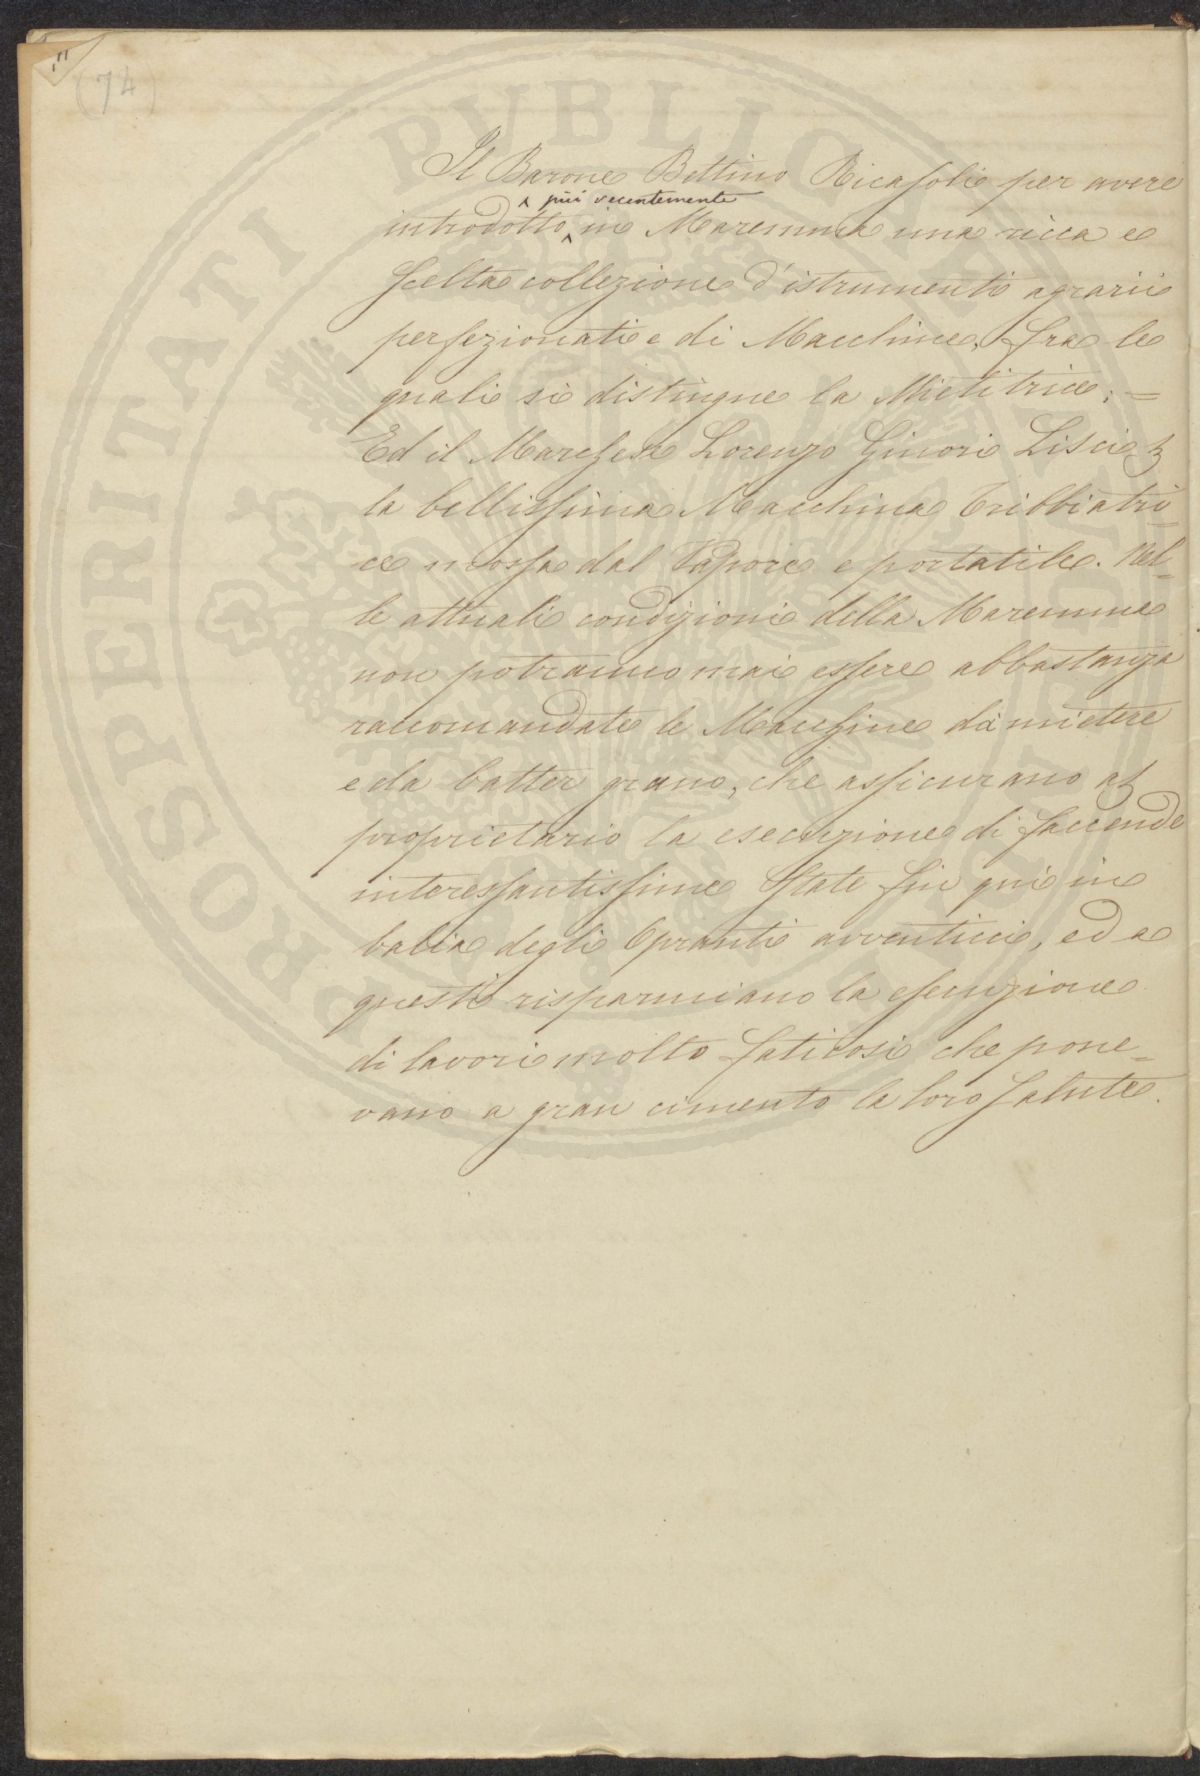 (74)
Il Barone Bettino Ricasoli per avere
più recentemente
introdotto in Maremma una ricca e
scelta collezione d'istrumenti agrarii
perfezionati e di Macchine, fra le
quali si distingue la Mietitrice; =
Ed il Marchese Lorenzo Ginori Lisci
la bellissima Macchina Tribbiatri=
ce mossa dal Vapore e portatile. Nel=
le attuali condizioni della Maremma
non potranno mai essere abbastanza
raccomandate le Macchine da mietere
e da batter grano, che assicurano al
proprietario la esecuzione di faccende
interessantissime state fin qui in
balia degli Opranti avventicci, ed a
questi risparmiano la esecuzione
di lavori molto faticosi che pone=
vano a gran cimento la loro salute.
PROSPERITATI PUBLICAE